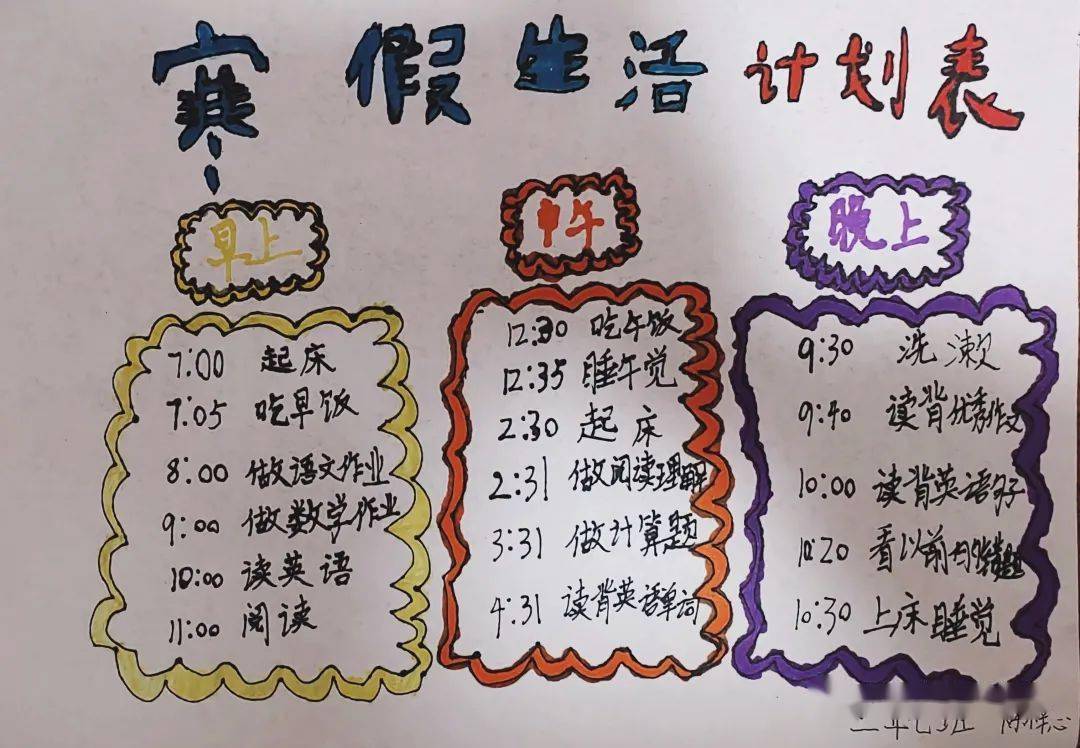 寒假生活计划表
早上
7:00 起床
7:05 吃早饭
8:00 做语文作业
9:00 做数学作业
10:00 读英语
11:00 阅读
中午
12:30 吃午饭
12:35 睡午觉
2:30 起床
2:31 做阅读理解
3:31 做计算题
4:31 读背英语单词
晚上
9:30 洗漱
9:40 读背优秀作文
10:00 读背英语句子
10:20 看以前的错题
10:30 上床睡觉